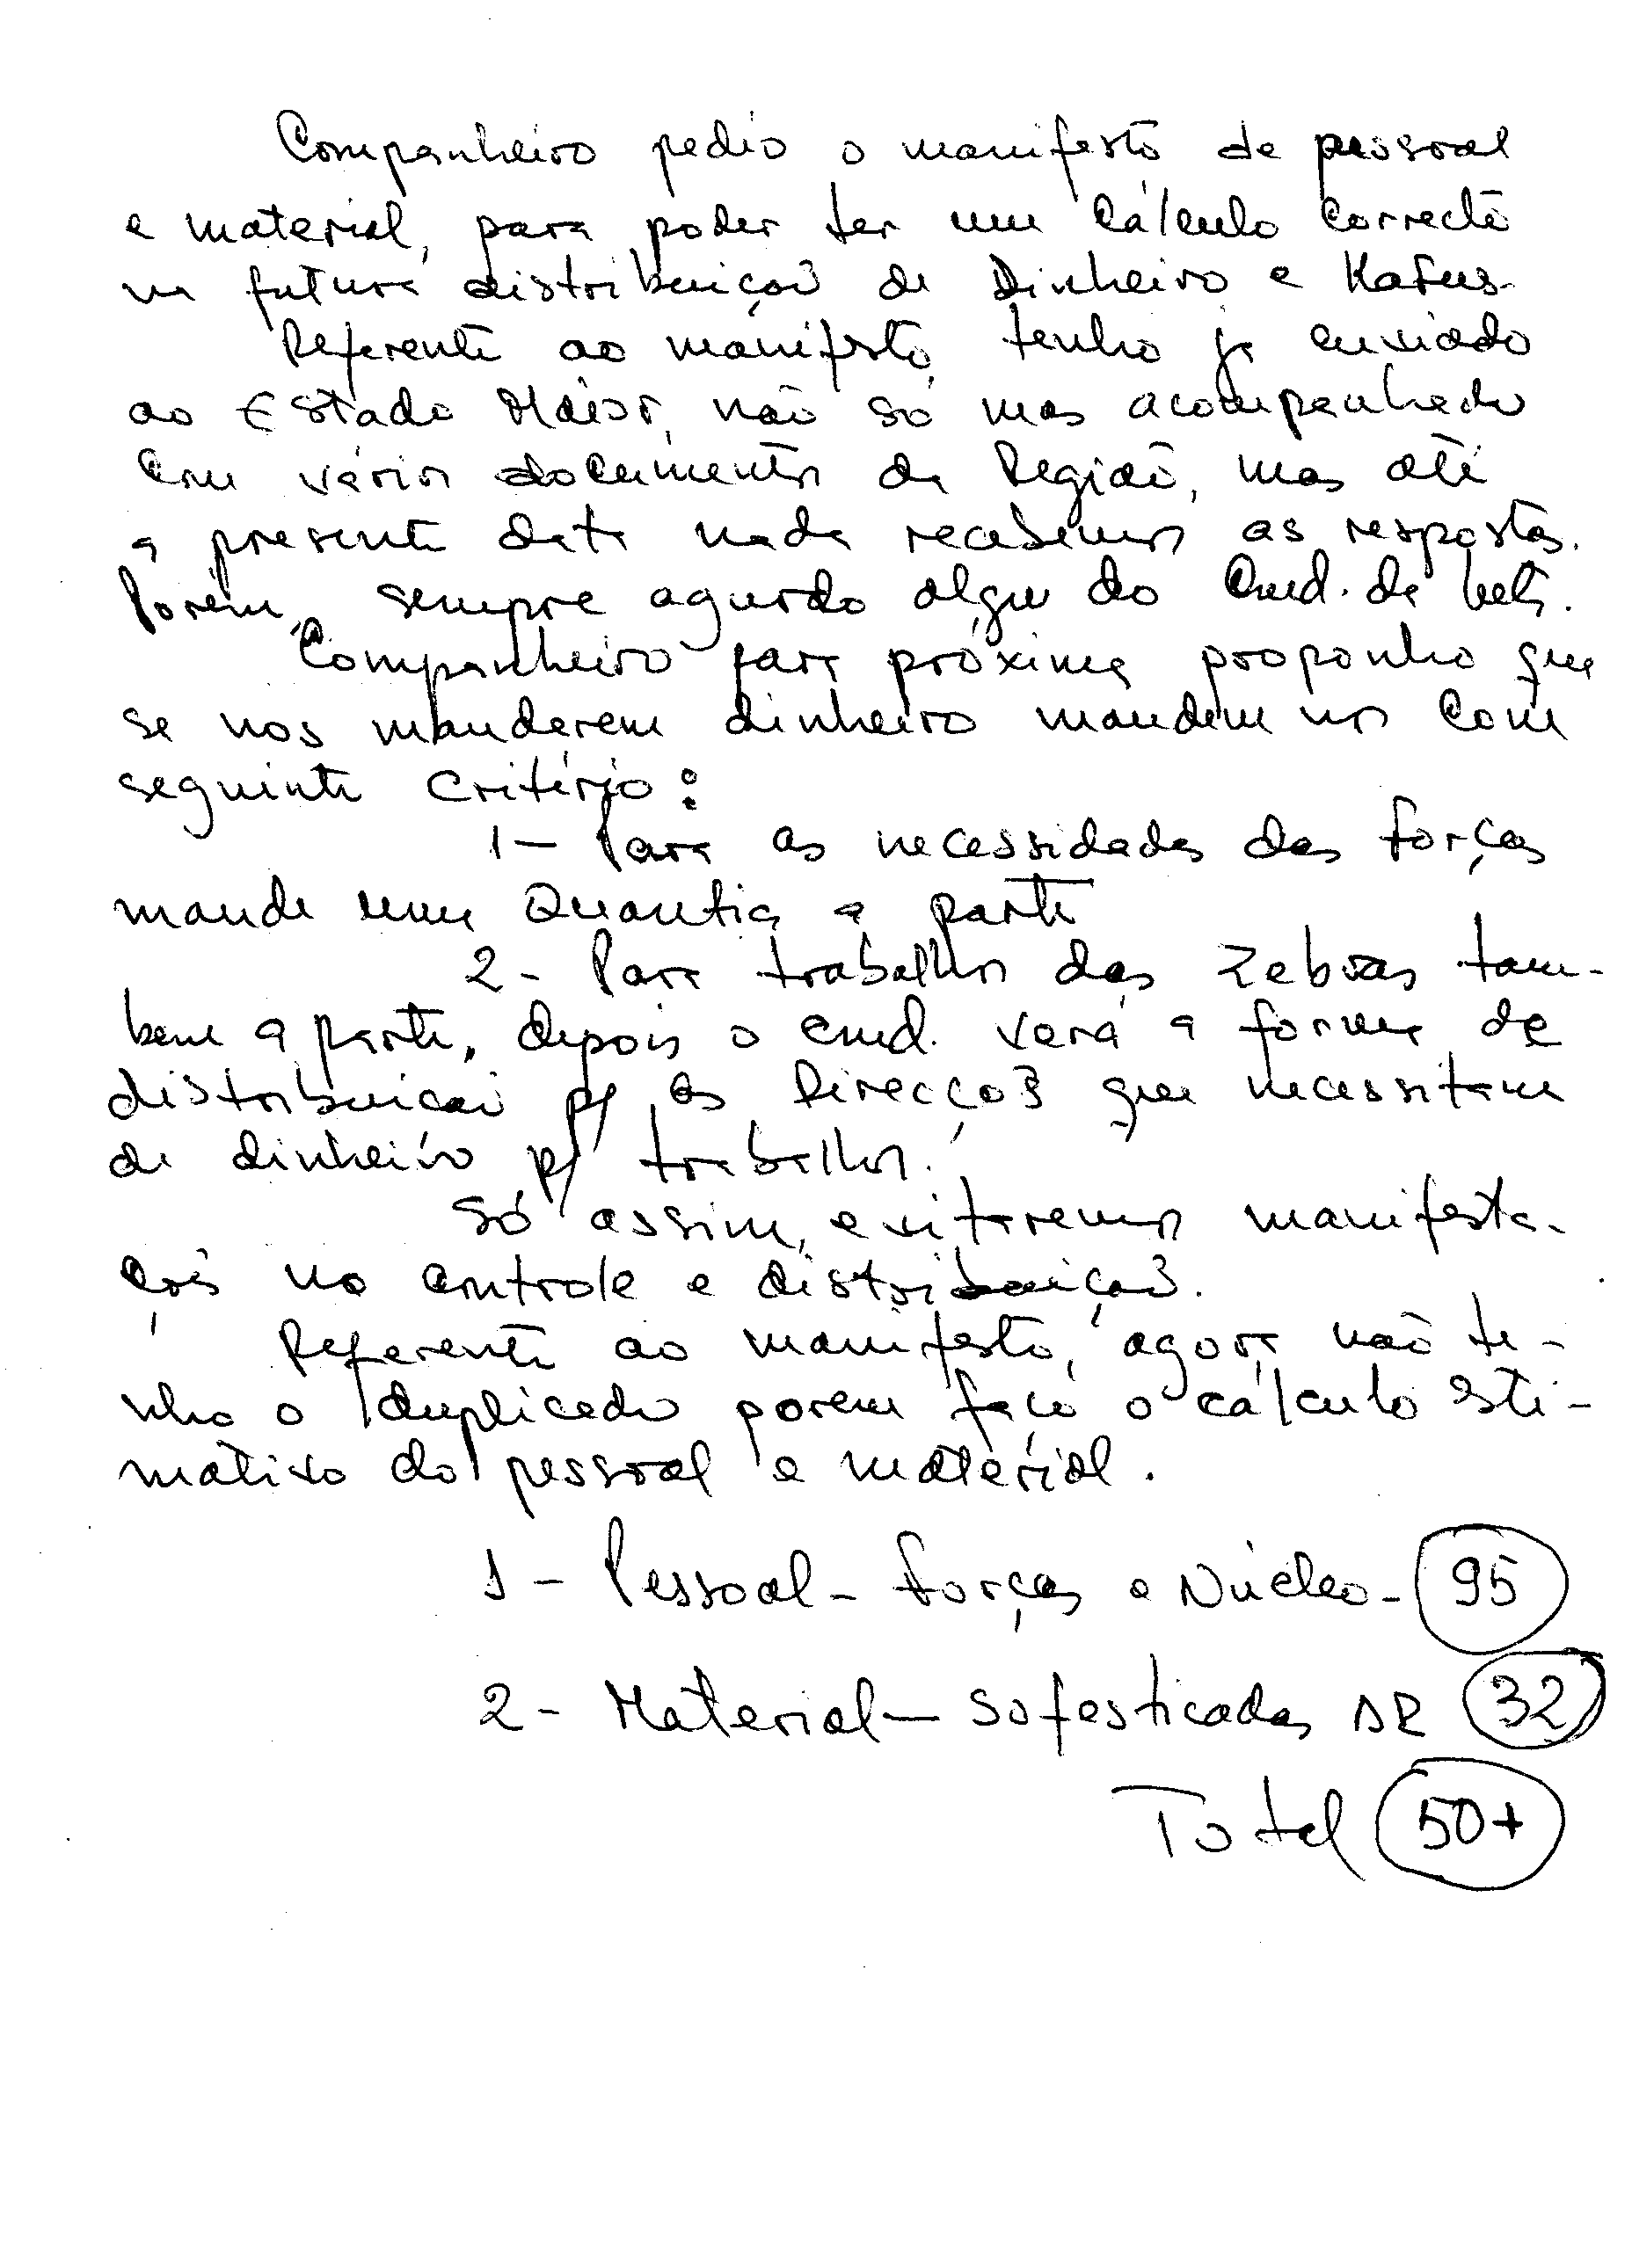 Companheiro pedio o manifesto de pessoal
e material, para poder ter um cálculo correcto
na futura distribuição de Dinheiro e
Referente ao manifesto, tenho ja enviado
ao Estado Maior, não só mas acompanhado
com vários documentos da Região, mas até
a presente data nada recebemos as respostas.
Porém, sempre aguardo algu do Cmd. da
Companheiro para próxima proponho que
se nos manderem dinheiro mandem nos com
seguinte critério:
1- Para as necessidades das forças
mande uma Quantia a parte
2- Para trabalhos das Zebras tam-
bem a parte, depois o cmd. verá a forma de
distribuicao p/ as Direcções que necessitam
de dinheiro p/ trabalhos.
Só assim, evitaremos manifesta-
ções no controle e distribuição.
Referente ao manifesto, agora não te-
nho o duplicado porem faço o cálculo esti-
mativo do pessoal e material.
1- Pessoal- forças e Núcleo- 95
2- Material- Sofesticadas AR 32
Total 50+